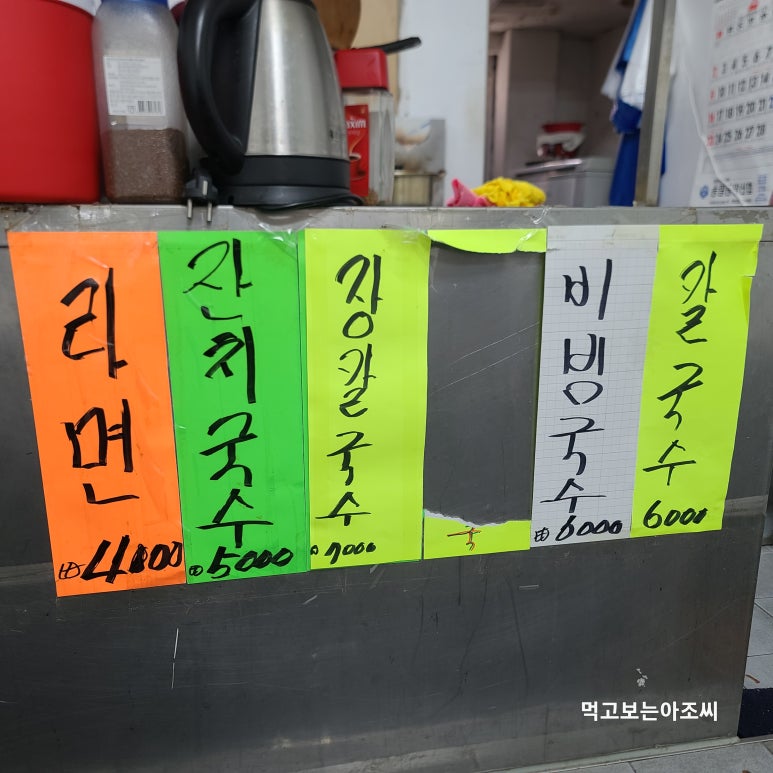 라면
4000
잔치국수
5000
장칼국수
7000
국
비빔국수
6000
칼국수
6000
먹고보는아조씨